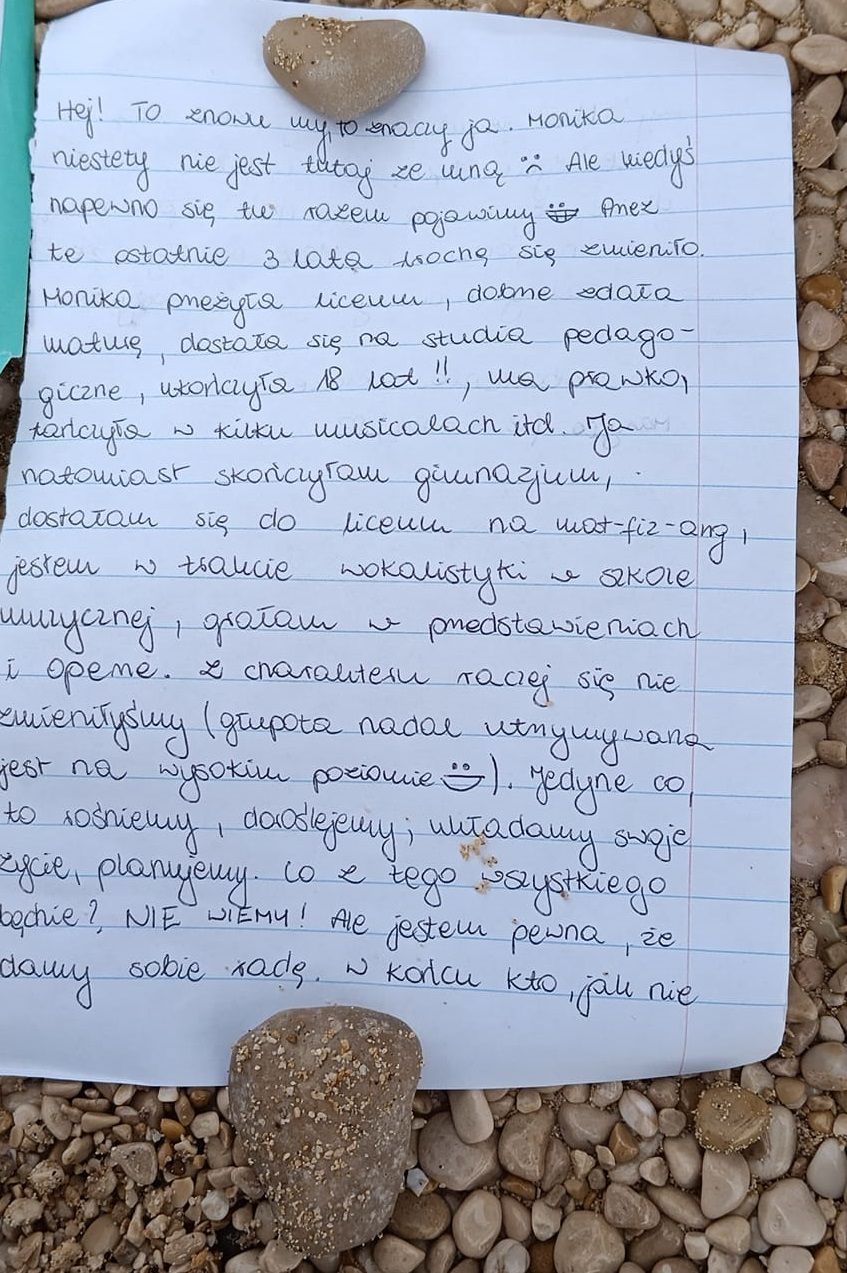 Hej! TO znowu my, to znaczy ja. Monika
niestety nie jest tutaj ze mną :( Ale kiedyś
napewno się tu razem pojawimy 😀 Przez
te ostatnie 3 lata trochę się zmieniło.
Monika przeżyła liceum, dobrze zdała
maturę, dostała się na studia pedago-
giczne, ukończyła 18 lat!!, ma prawko,
tańczyła w kilku musicalach itd. Ja
natomiast skończyłam gimnazjum,
dostałam się do liceum na mat-fiz-ang,
jestem w trakcie wokalistyki w szkole
muzycznej, grałam w przedstawieniach
i operze. Z charakteru raczej się nie
zmieniłyśmy (głupota nadal utrzymywana
jest na wysokim poziomie :)). Jedyne co,
to rośniemy, doroślejemy, układamy swoje
życie, planujemy. Co z tego wszystkiego
będzie? NIE WIEMY! Ale jestem pewna, że
damy sobie radę. W końcu kto, jak nie